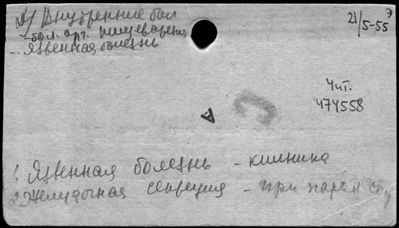 А) Внутренние бол
21/5-55 э
бол. орг. пищеварения
- Язвенная болезнь
Чит.
474558
1. Язвенная болезнь - клиника
2. Желудочная секреция - при